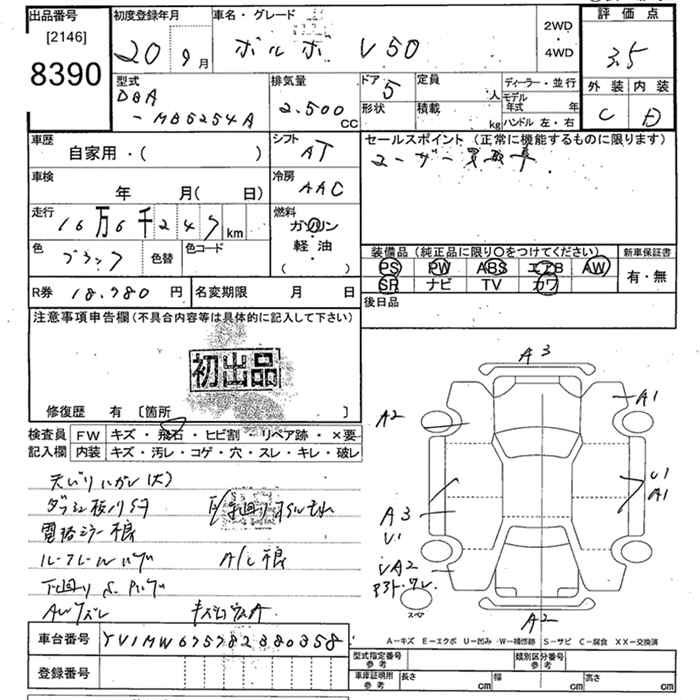 出品番号
[2146]
8390
初度登録年月
20 9月
車名・グレード
ボルボ V50
2WD
・
4WD
評価点
3.5
外装 内装
C D
型式
DBA
-MB5254A
排気量
2.500 CC
ドア 5
形状
定員 人
積載 kg
ディーラー・並行
モデル年式 年
ハンドル 左・右
車歴
自家用・( )
シフト
AT
セールスポイント (正常に機能するものに限ります)
ユーザー買取車
車検
年 月( 日)
冷房
AAC
走行
16万6千247km
燃料
ガソリン
軽油
( )
色
ブラック
色替
色コード
装備品 (純正品に限り〇をつけてください)
PS PW ABS エアB AW
SR ナビ TV カワ
新車保証書
有・無
R券 18.980 円
名変期限 月 日
後日品
注意事項申告欄 (不具合内容等は具体的に記入して下さい)
初出品
修復歴 有 [箇所 ]
検査員記入欄
FW キズ・飛石・ヒビ割・リペア跡・×要
内装 キズ・汚レ・コゲ・穴・スレ・キレ・破レ
電格ミラー不良
A/C不良
A3
A2
A1
A3
U1
U1
A1
A2
A－キズ E－エクボ U－凹み W－補修跡 S－サビ C－腐食 XX－交換済
車台番号 YV1MW675782380358
登録番号
型式指定番号 参考
類別区分番号 参考
車庫証明用 参考
長さ cm
幅 cm
高さ cm